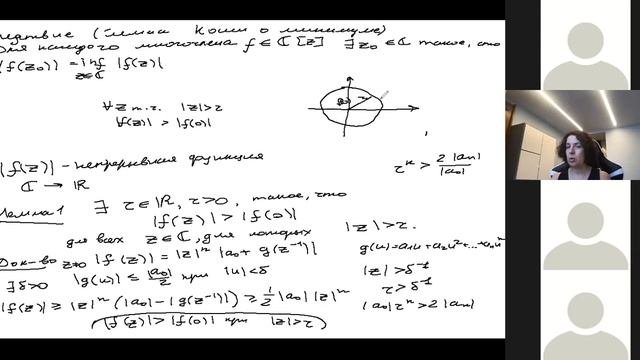 (Лемма Коши о минимуме)
для каждого многочлена f ∈ ℂ[z] ∃ z₀ ∈ ℂ такое, что
|f(z₀)| = inf |f(z)|
z∈ℂ
∀z т.ч. |z|>r
|f(z)| > |f(0)|
|f(z)| - непрерывная функция
ℂ → ℝ
rⁿ > 2|aₙ| / |a₀|
Лемма 1 ∃ r∈ℝ, r>0, такое, что
|f(z)| > |f(0)|
для всех z∈ℂ, для которых |z|>r.
Док-во z≠0 |f(z)| = |z|ⁿ |a₀ + g(z⁻¹)|
g(u) = a₁u + a₂u² + ... + aₙuⁿ
∃ δ>0 |g(u)| ≤ |a₀|/2 при |u|<δ
|z| > δ⁻¹
r > δ⁻¹
|f(z)| ≥ |z|ⁿ (|a₀| - |g(z⁻¹)|) ≥ 1/2 |a₀| |z|ⁿ
|a₀| rⁿ > 2|aₙ|
|f(z)| > |f(0)| при |z|>r